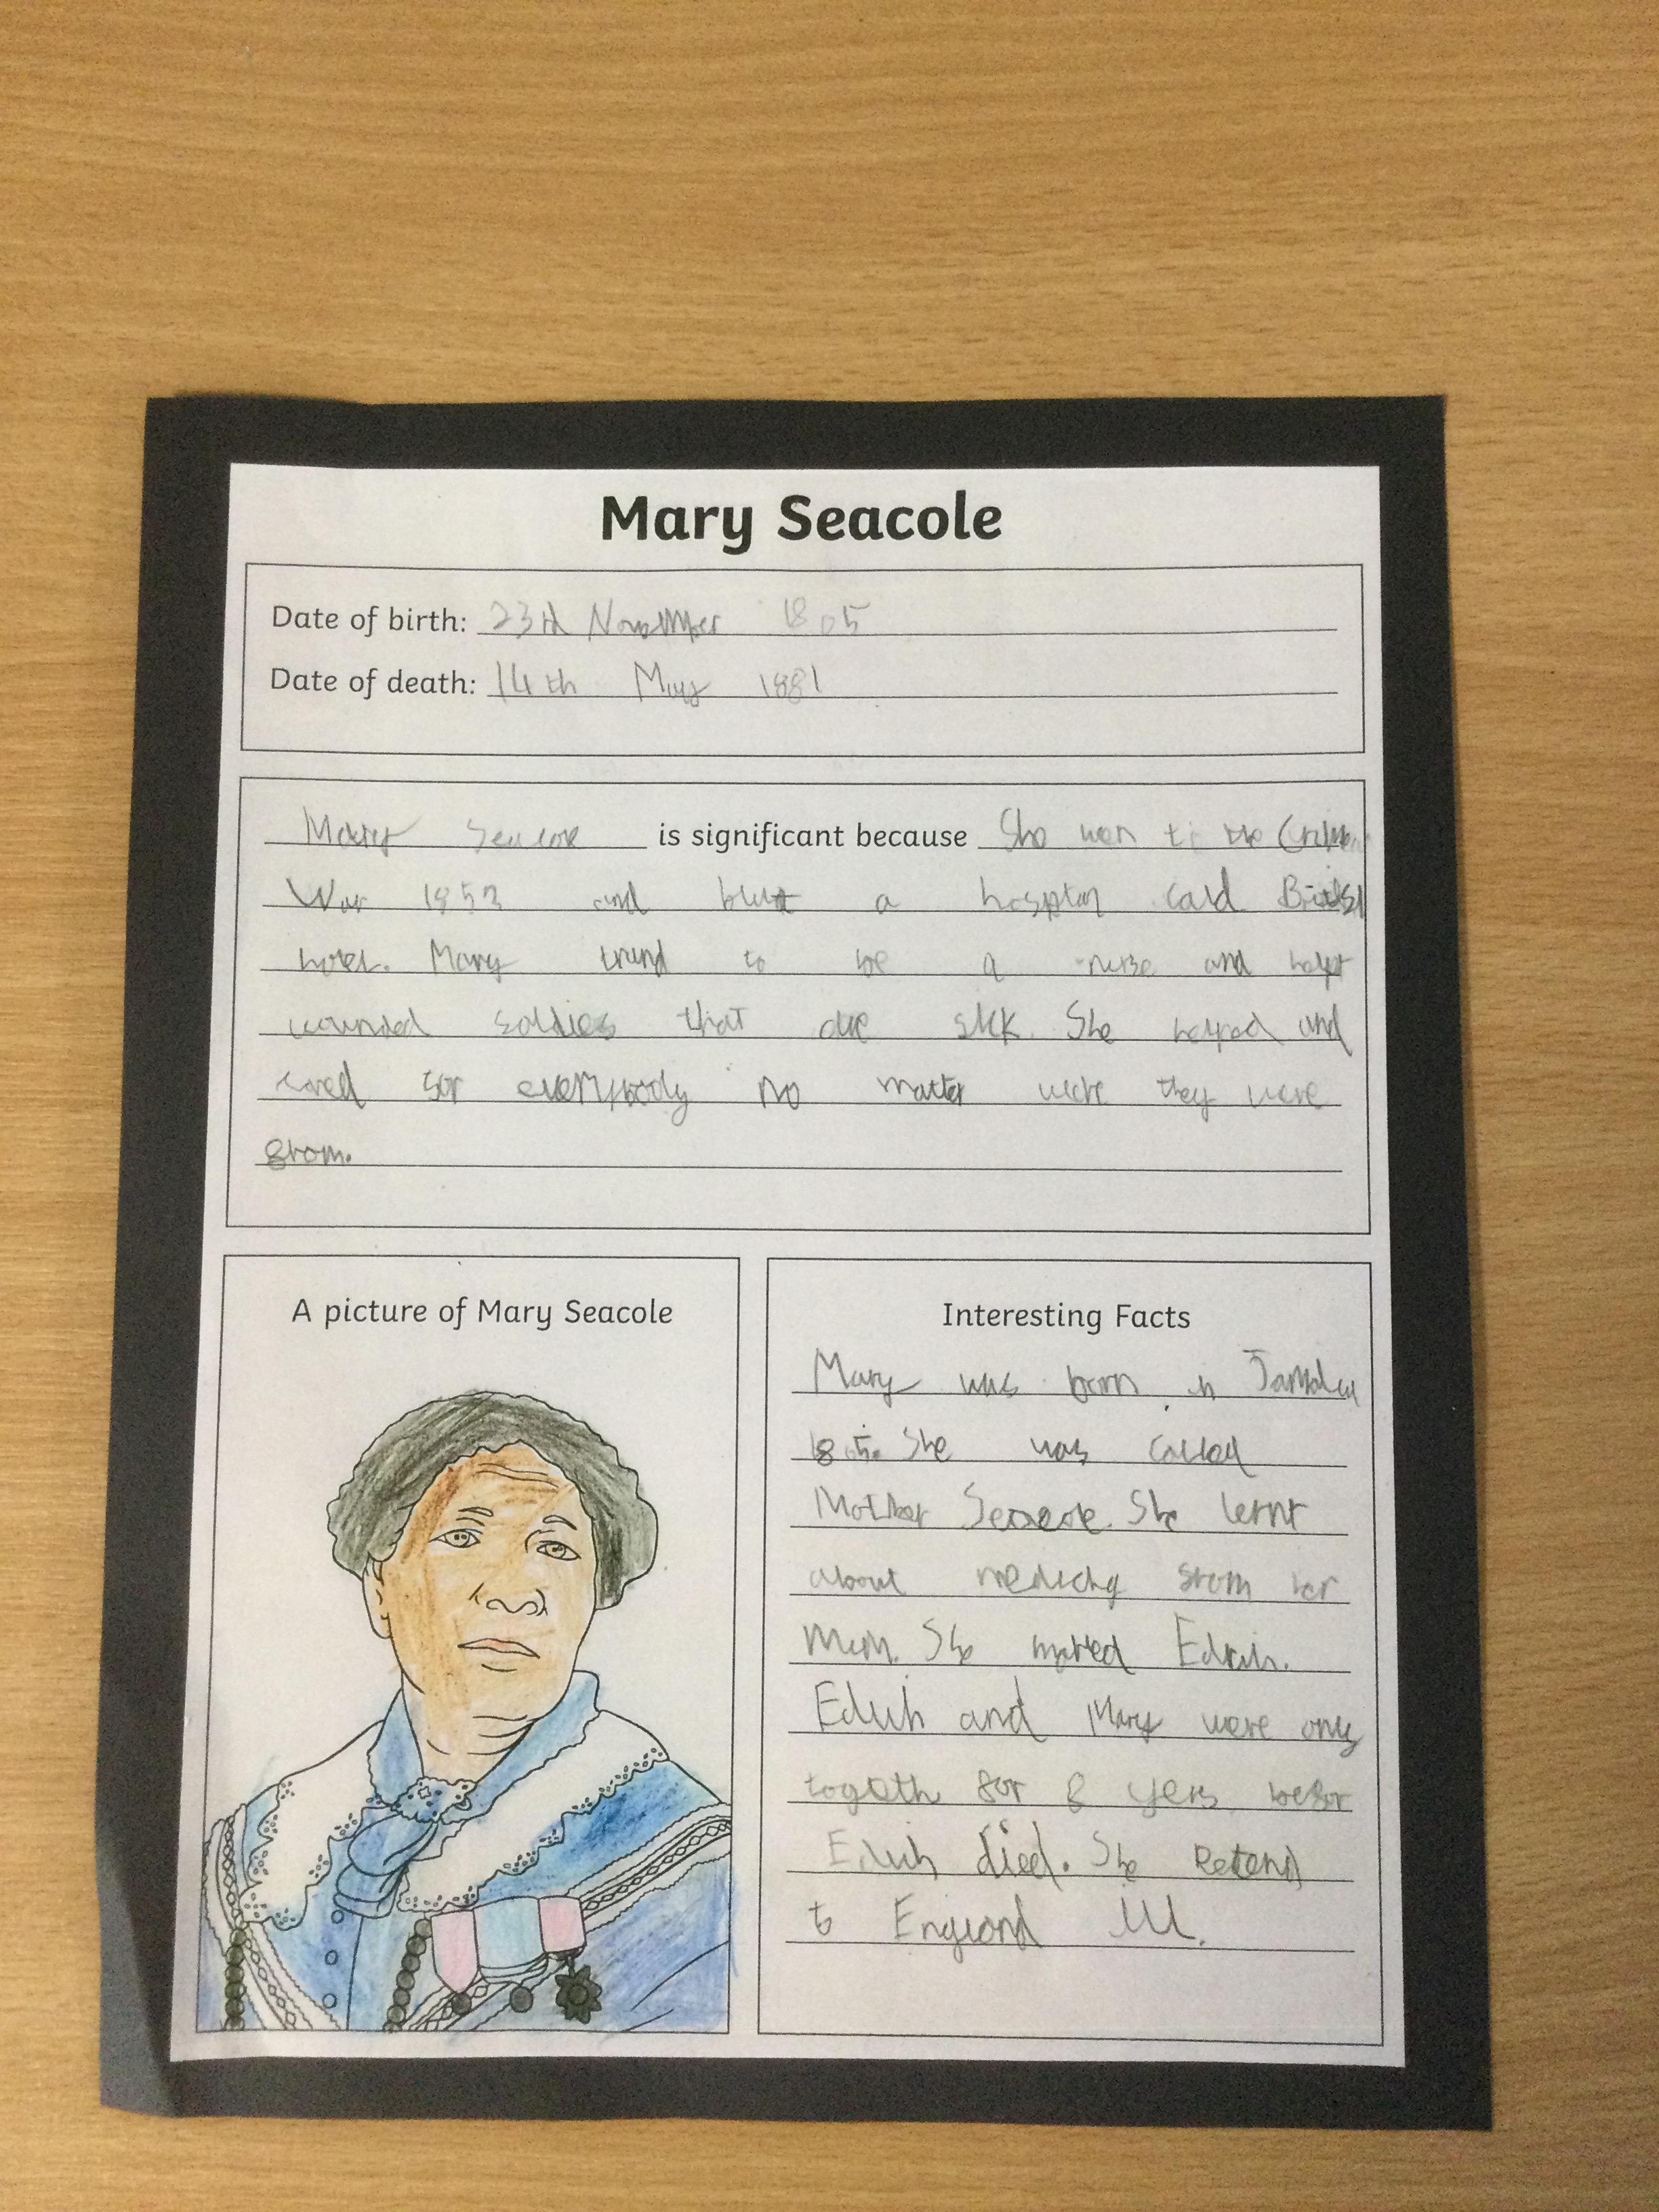 Mary Seacole
Date of birth: 23rd November 1805
Date of death: 14th May 1881
Mary Seacole is significant because She wen to the
War 1853 and a cald
hotel. Mary trand to be a nurse and helpt
wounded soldies that are sick. She helped and
cared for everybody no matter were they were
from.
A picture of Mary Seacole
Interesting Facts
Mary was born in
1805. She was called
Mother Seacole. She lernt
about from her
Mum. She marred
and Mary were only
togeth for 8 yers befor
died. She
to England ill.